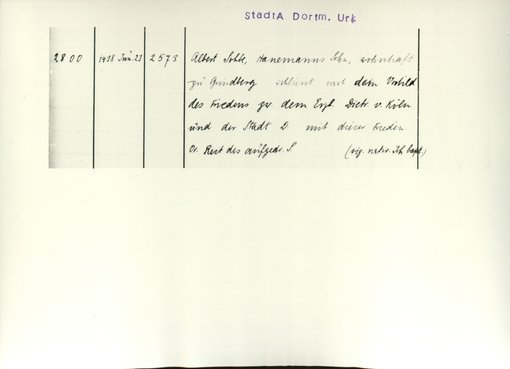 StadtA Dortm. Urk
2800 1418 Jun. 23 2573 Albert Sobbe, Hanemanns Sohn, wohnhaft
zu Grimberg schliesst nach dem Vorbild
des Friedens zw. dem Erzb. Dietr. v. Köln
und der Stadt D mit dieser Frieden
Or. Rest des aufgedr. S